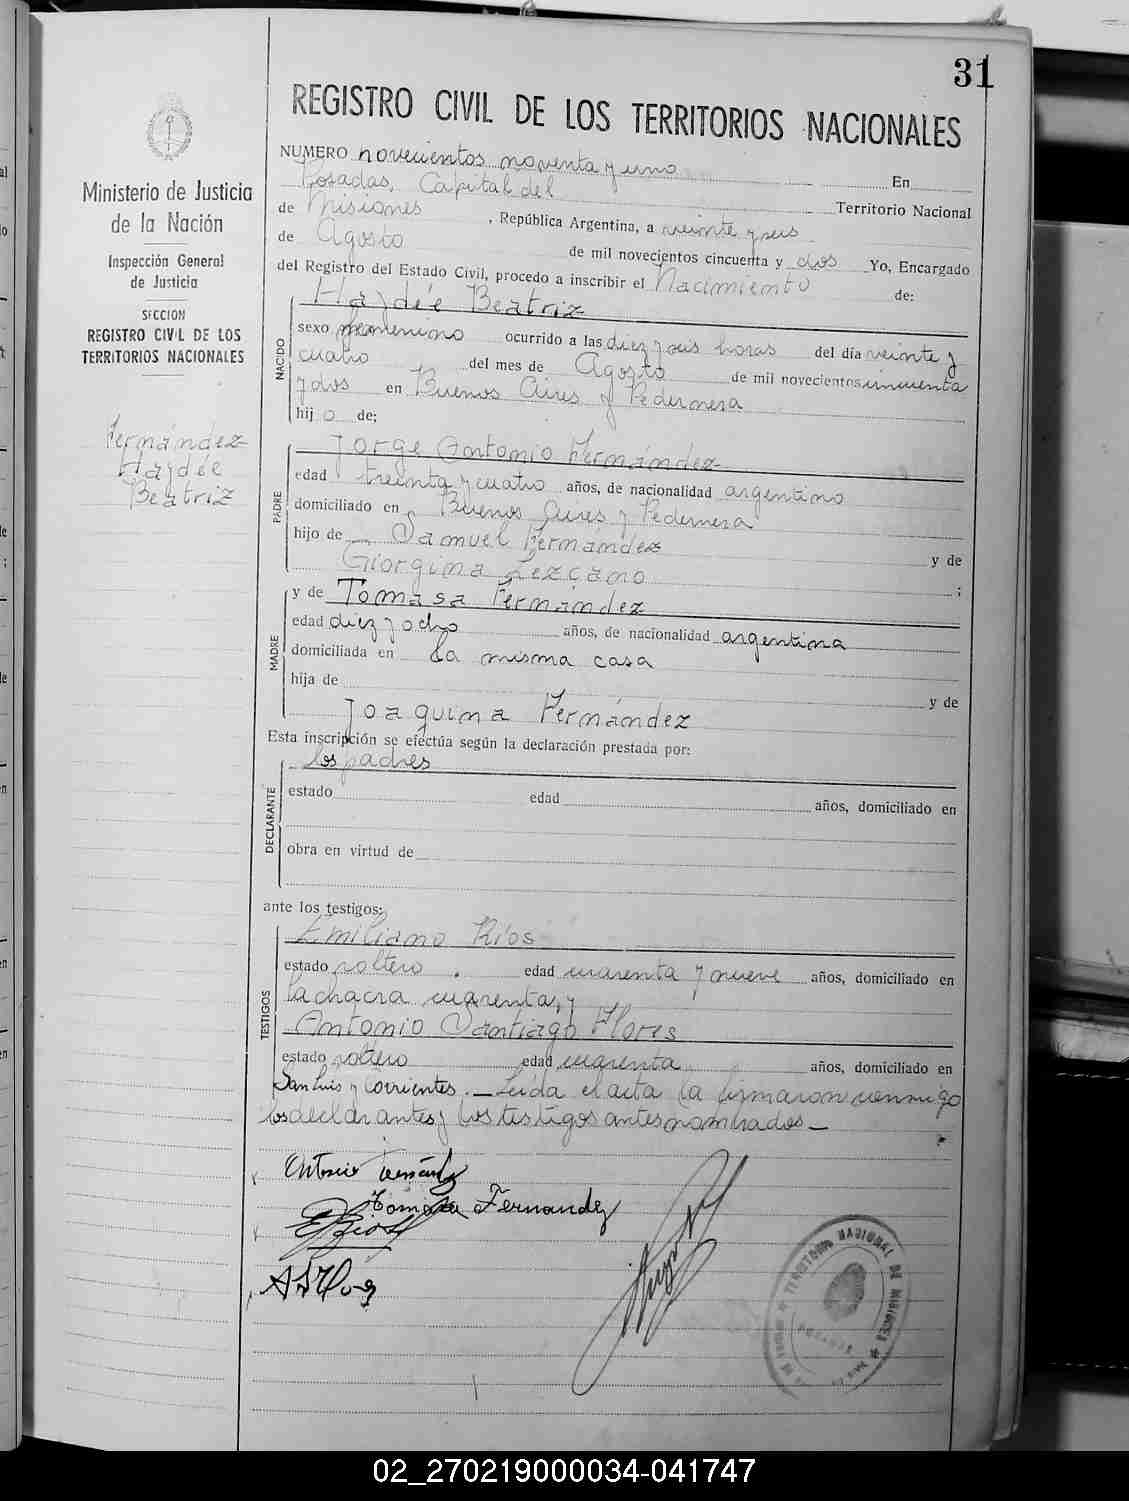 31
REGISTRO CIVIL DE LOS TERRITORIOS NACIONALES
Ministerio de Justicia
de la Nación
Inspección General
de Justicia
SECCION
REGISTRO CIVIL DE LOS
TERRITORIOS NACIONALES
Fernández
Haydée
Beatriz
NUMERO novecientos noventa y uno En
Posadas, Capital del Territorio Nacional
de Misiones, República Argentina, a veinte y seis
de Agosto de mil novecientos cincuenta y dos Yo, Encargado
del Registro del Estado Civil, procedo a inscribir el Nacimiento de:
NACIDO
Haydée Beatriz
sexo femenino ocurrido a las diez y seis horas del día veinte y
cuatro del mes de Agosto de mil novecientos cincuenta
y dos en Buenos Aires y Pedernera
hij a de;
PADRE
Jorge Antonio Fernández
edad treinta y cuatro años, de nacionalidad argentino
domiciliado en Buenos Aires y Pedernera
hijo de Samuel Fernández y de
Giorgina Lezcano ;
MADRE
y de Tomasa Fernández
edad diez y ocho años, de nacionalidad argentina
domiciliada en la misma casa
hija de y de
Joaquina Fernández
Esta inscripción se efectúa según la declaración prestada por:
DECLARANTE
los padres
estado edad años, domiciliado en
obra en virtud de
ante los testigos:
TESTIGOS
Emiliano Ríos
estado soltero . edad cuarenta y nueve años, domiciliado en
la chacra cuarenta, y
Antonio Santiago Flores
estado soltero edad cuarenta años, domiciliado en
San Luis y Corrientes. — Leída el acta la firmaron conmigo
los declarantes y los testigos antes nombrados —
Antonio Fernández
Tomasa Fernandez
E Rios
TERRITORIO NACIONAL DE MISIONES
POSADAS
02_270219000034-041747